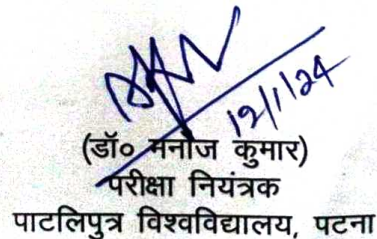 12/1/24
(डॉ० मनोज कुमार)
परीक्षा नियंत्रक
पाटलिपुत्र विश्वविद्यालय, पटना